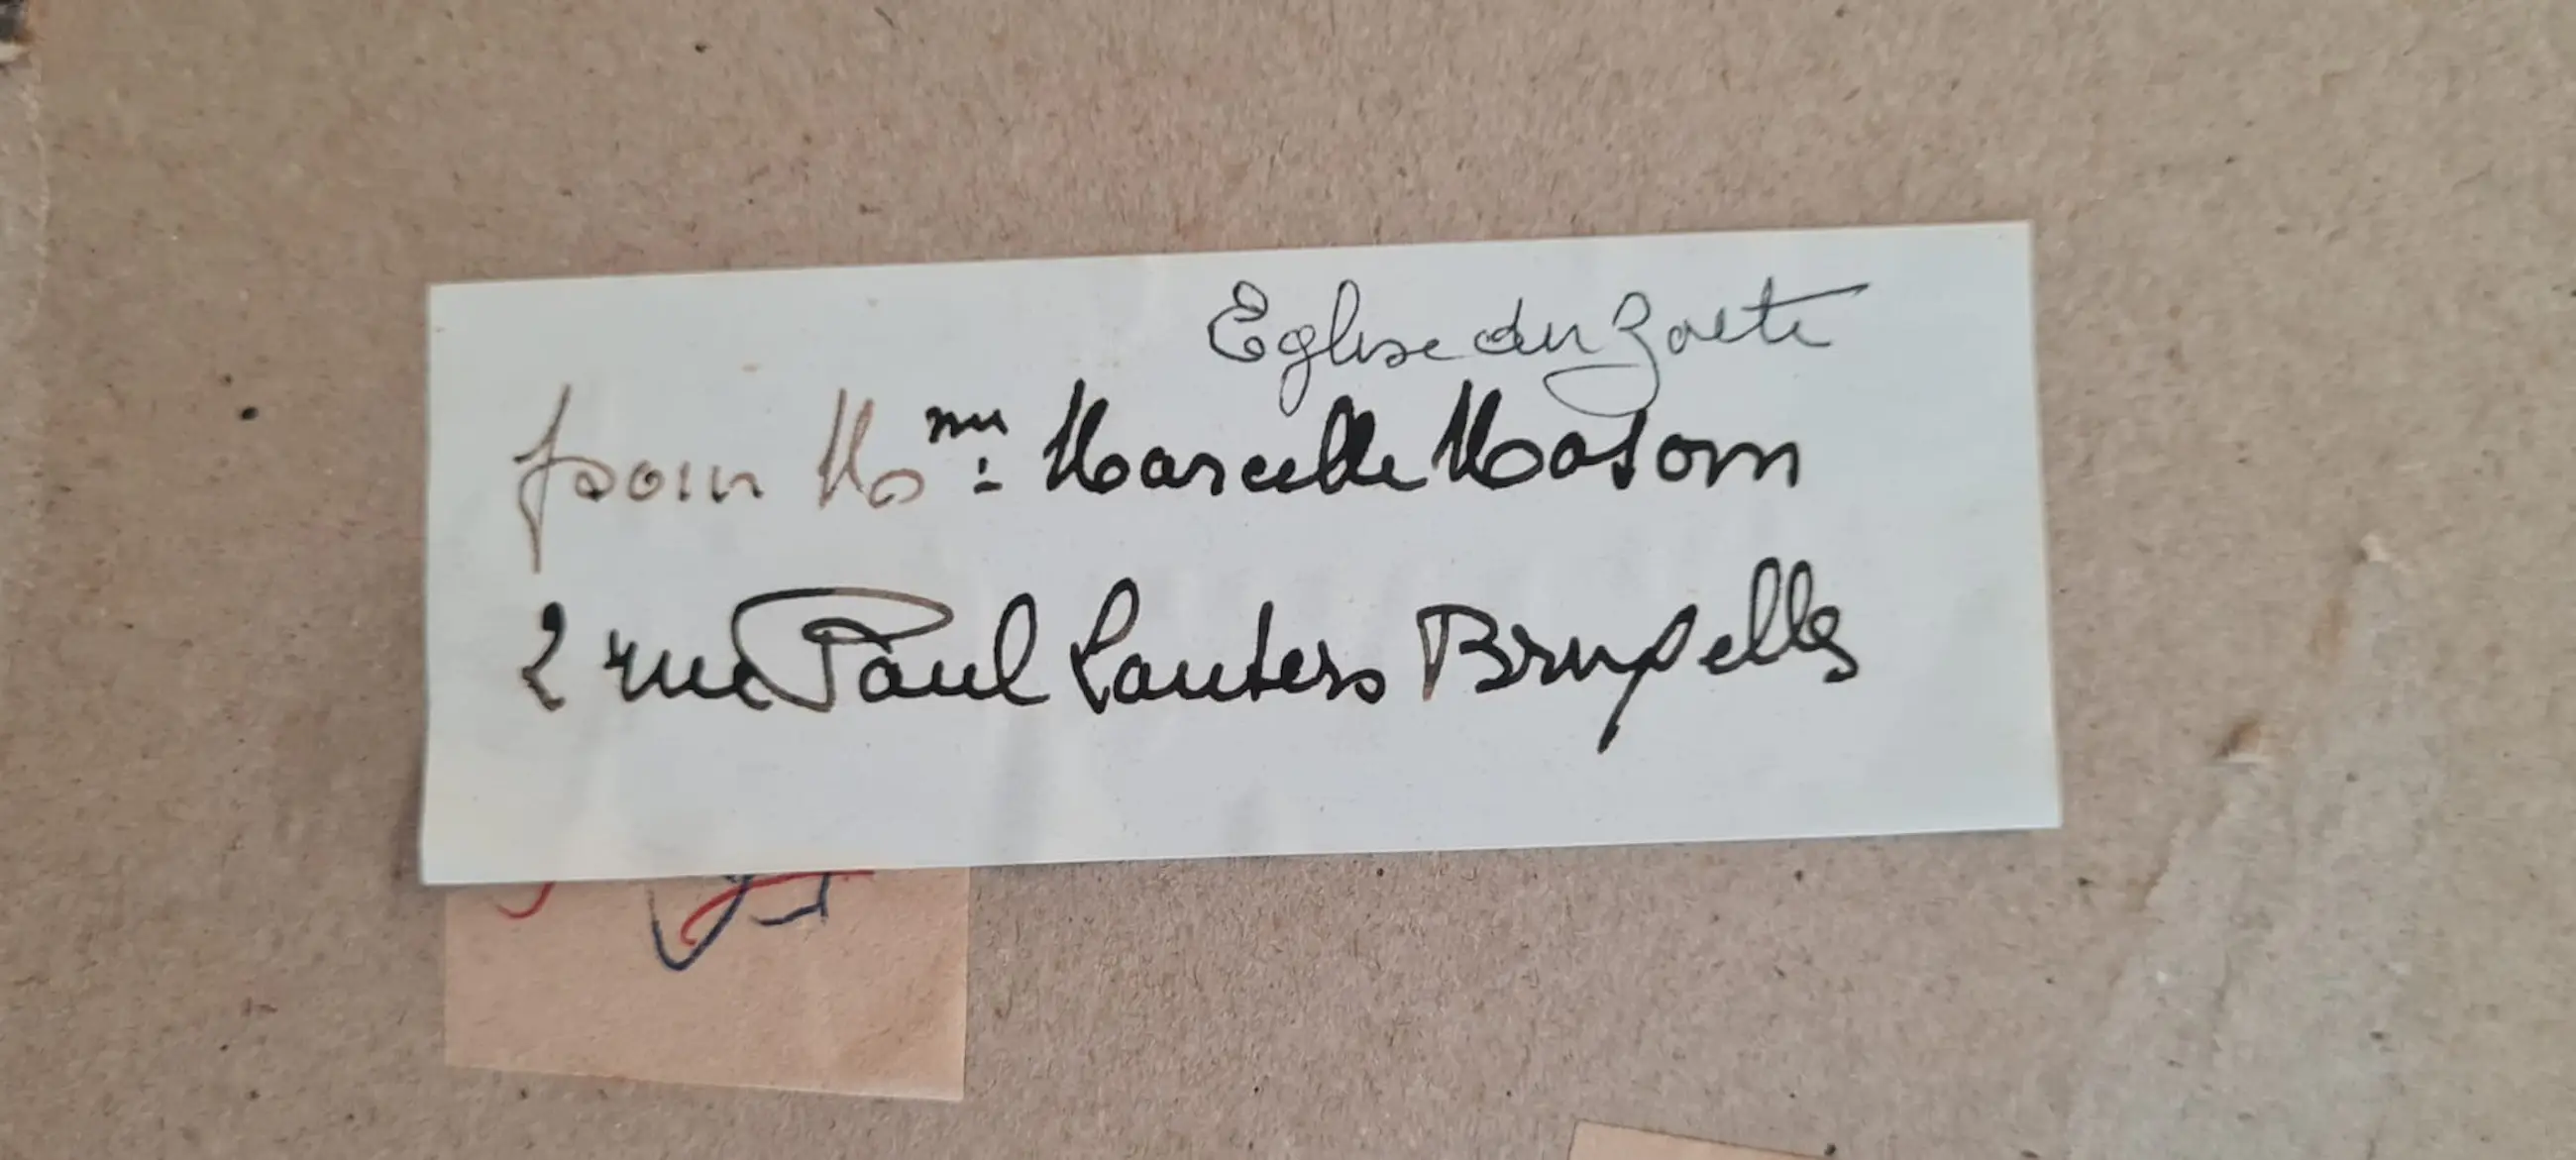 Eglise du Zoute
pour Mme: Marcelle Masson
2 rue Paul Lauters Bruxelles